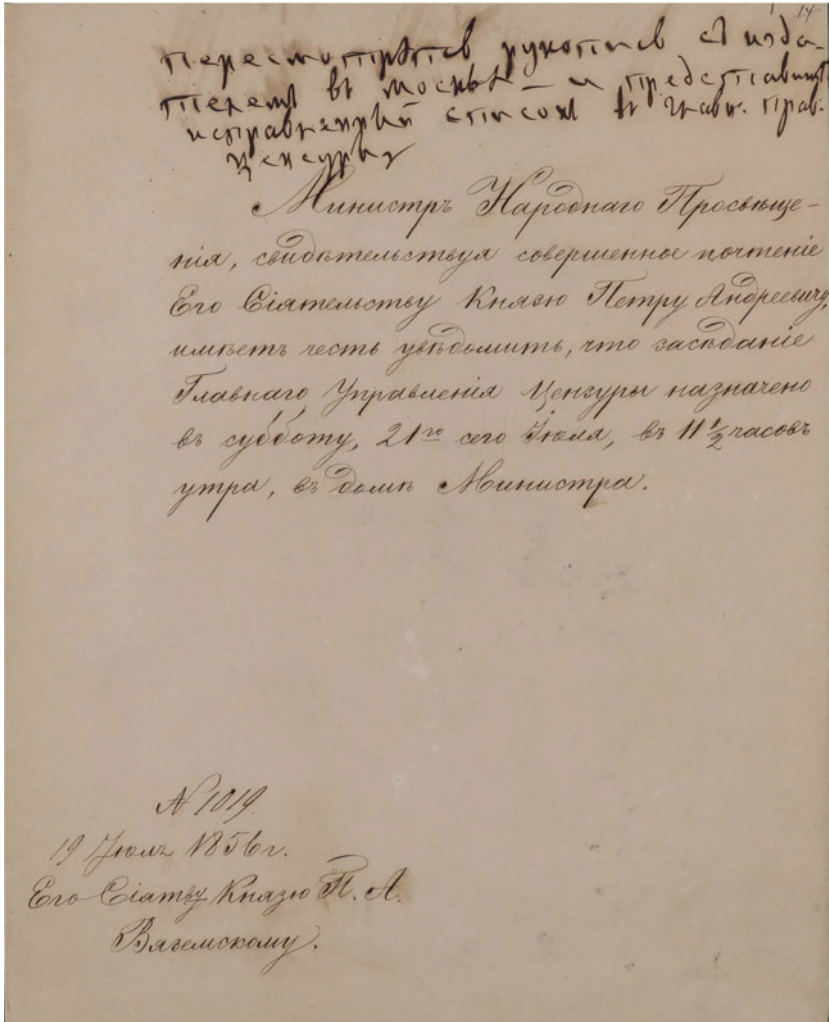 1 14
пересмотрѣть рукопись съ изда-
телемъ въ Москвѣ — и представить
исправленный списокъ въ Главн. Прав.
Цензуры
Министръ Народнаго Просвѣще-
нія, свидѣтельствуя совершенное почтеніе
Его Сіятельству Князю Петру Андреевичу,
имѣетъ честь увѣдомить, что засѣданіе
Главнаго Управленія Цензуры назначено
въ субботу, 21го сего Іюля, въ 11 ½ часовъ
утра, въ домѣ Министра.
№ 1019.
19 Іюля 1856 г.
Его Сіятву Князю П. А.
Вяземскому.